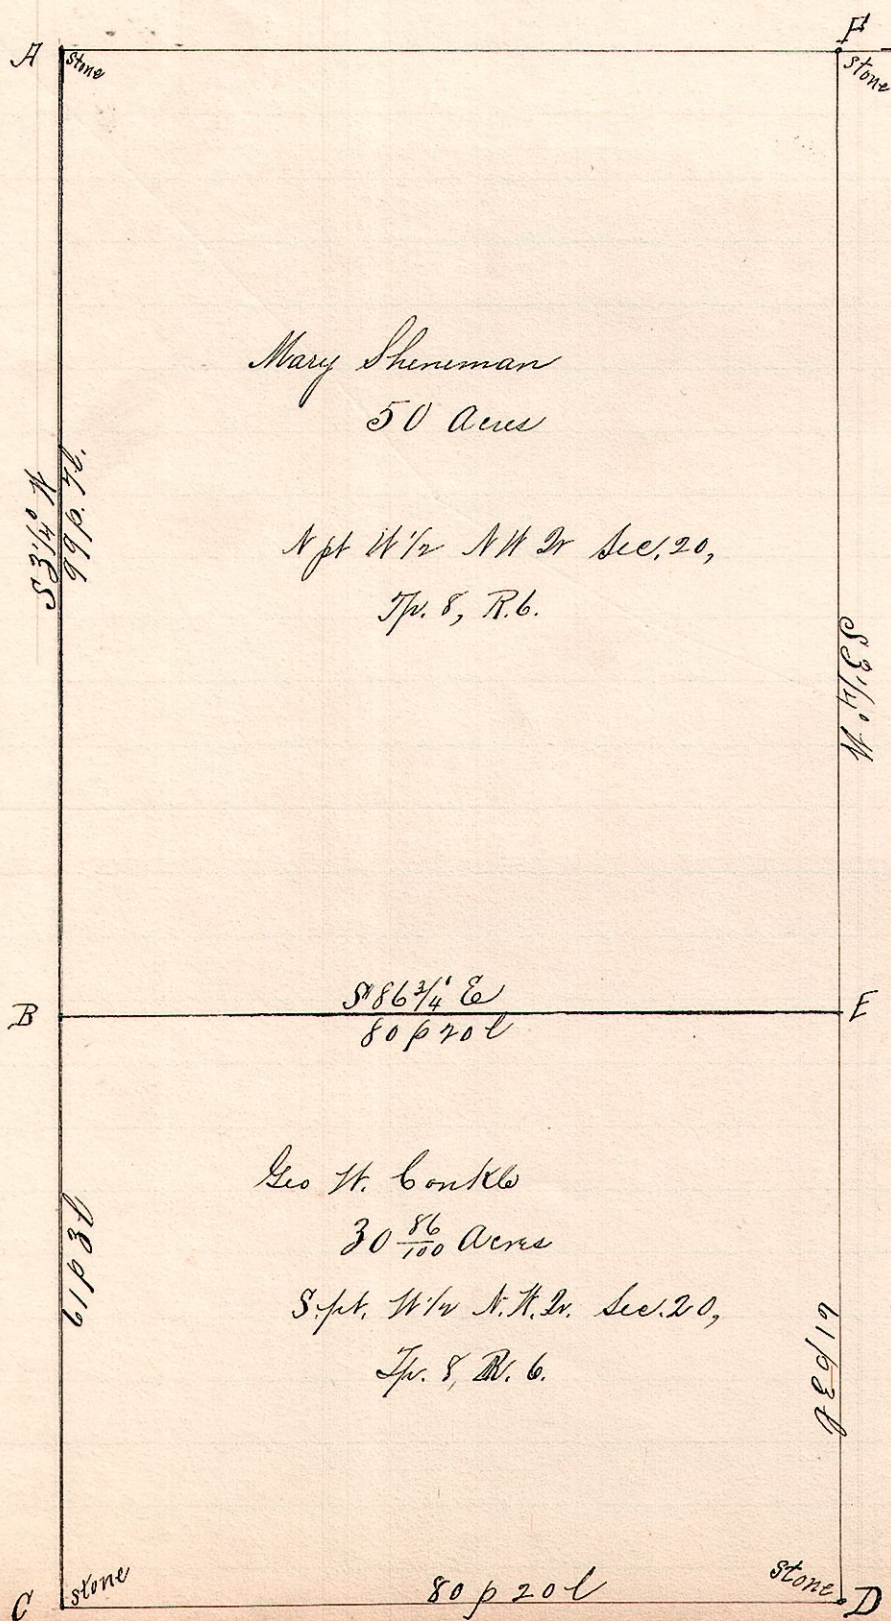 A
stone
F
stone
Mary Sheneman
50 Acres
S 3 1/4° W
99 p. 7 l.
N pt W 1/2 N W Qr Sec. 20,
Tp. 8, R. 6.
S 3 1/4° W
B
S 86 3/4° E
80 p 20 l
E
Geo W. Conkle
30 86/100 Acres
61 p 3 l
S. pt. W 1/2 N. W. Qr. Sec. 20,
Tp. 8, R. 6.
61 p 3 l
C
stone
80 p 20 l
stone
D